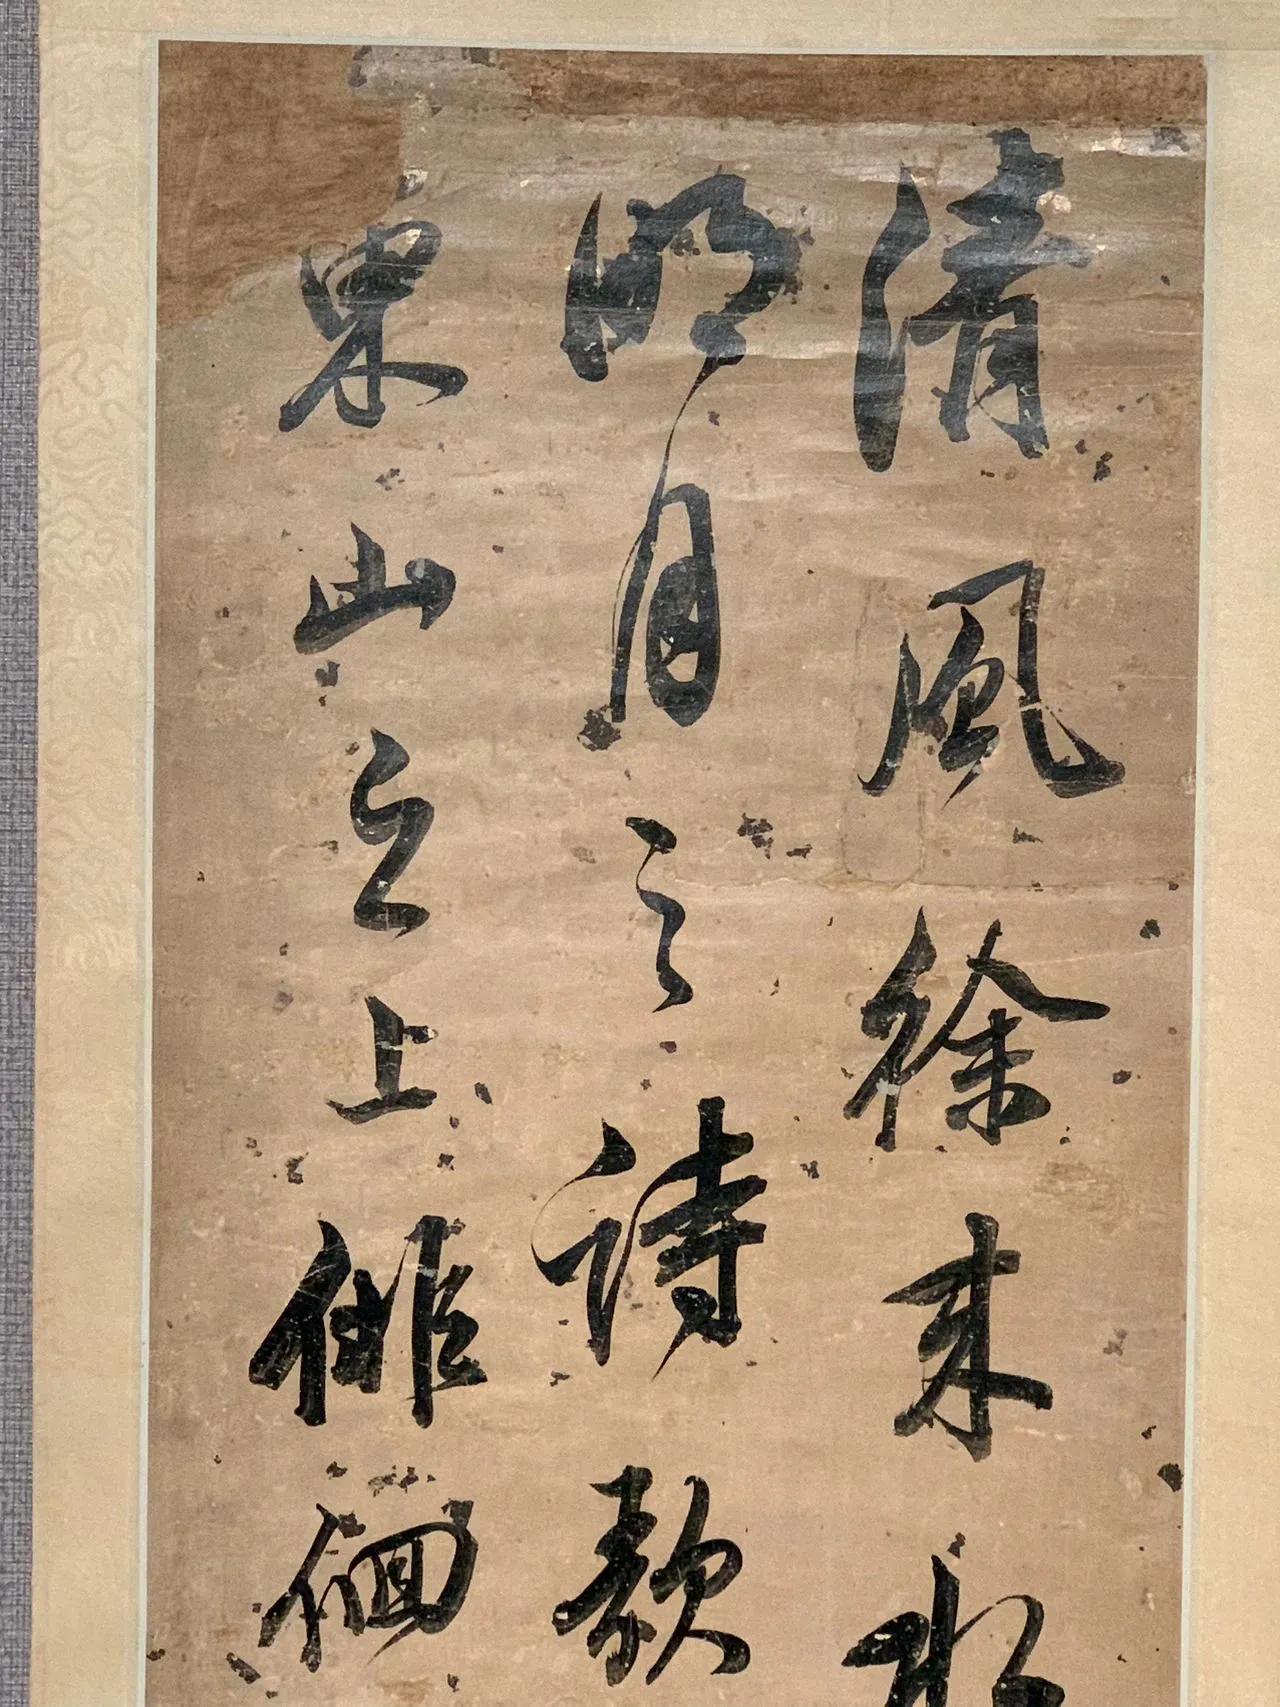 清風徐来水
明月之詩歌
東山之上俳佪